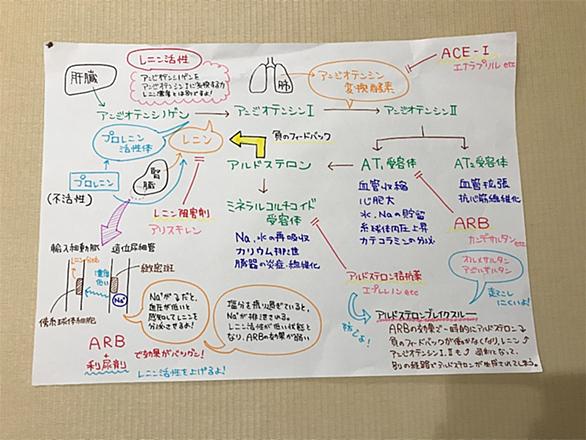 レニン活性
アンジオテンシノゲンを
アンジオテンシンIに変換する力
レニン濃度とは別だよ!
肝臓
肺
アンジオテンシン
変換酵素
ACE-I
エナラプリル etc
アンジオテンシノゲン
アンジオテンシンI
アンジオテンシンII
プロレニン
活性体
レニン
負のフィードバック
アルドステロン
AT₁受容体
AT₂受容体
プロレニン
(不活性)
腎臓
血管収縮
心肥大
水、Naの貯留
糸球体内圧上昇
カテコラミンの分泌
血管拡張
抗心筋線維化
レニン阻害剤
アリスキレン
ミネラルコルチコイド
受容体
Na、水の再吸収
カリウム排泄
臓器の炎症・線維化
ARB
カンデサルタン etc
オルメサルタン
アジルサルタン
起こしにくいよ!
輸入細動脈
遠位尿細管
レニン分泌
緻密斑
濃度低い
Na⁺
傍糸球体細胞
アルドステロン拮抗薬
エプレレノン etc
防ぐよ!
Na⁺が↓だと、
血圧が低いと
感知してレニンを
分泌させるよ!
塩分を摂り過ぎていると、
Na⁺が排泄される。
レニン活性が低い状態と
なり、ARBの効果が弱い
アルドステロンブレイクスルー
ARBの効果で一時的にアルドステロン↓
負のフィードバックが働かなくなり、レニン↑
アンジオテンシンI、IIも↑ 過剰となって、
別の経路でアルドステロンが生成されてしまう。
ARB
+
利尿剤
で効果がバツグン!
レニン活性を上げるよ!